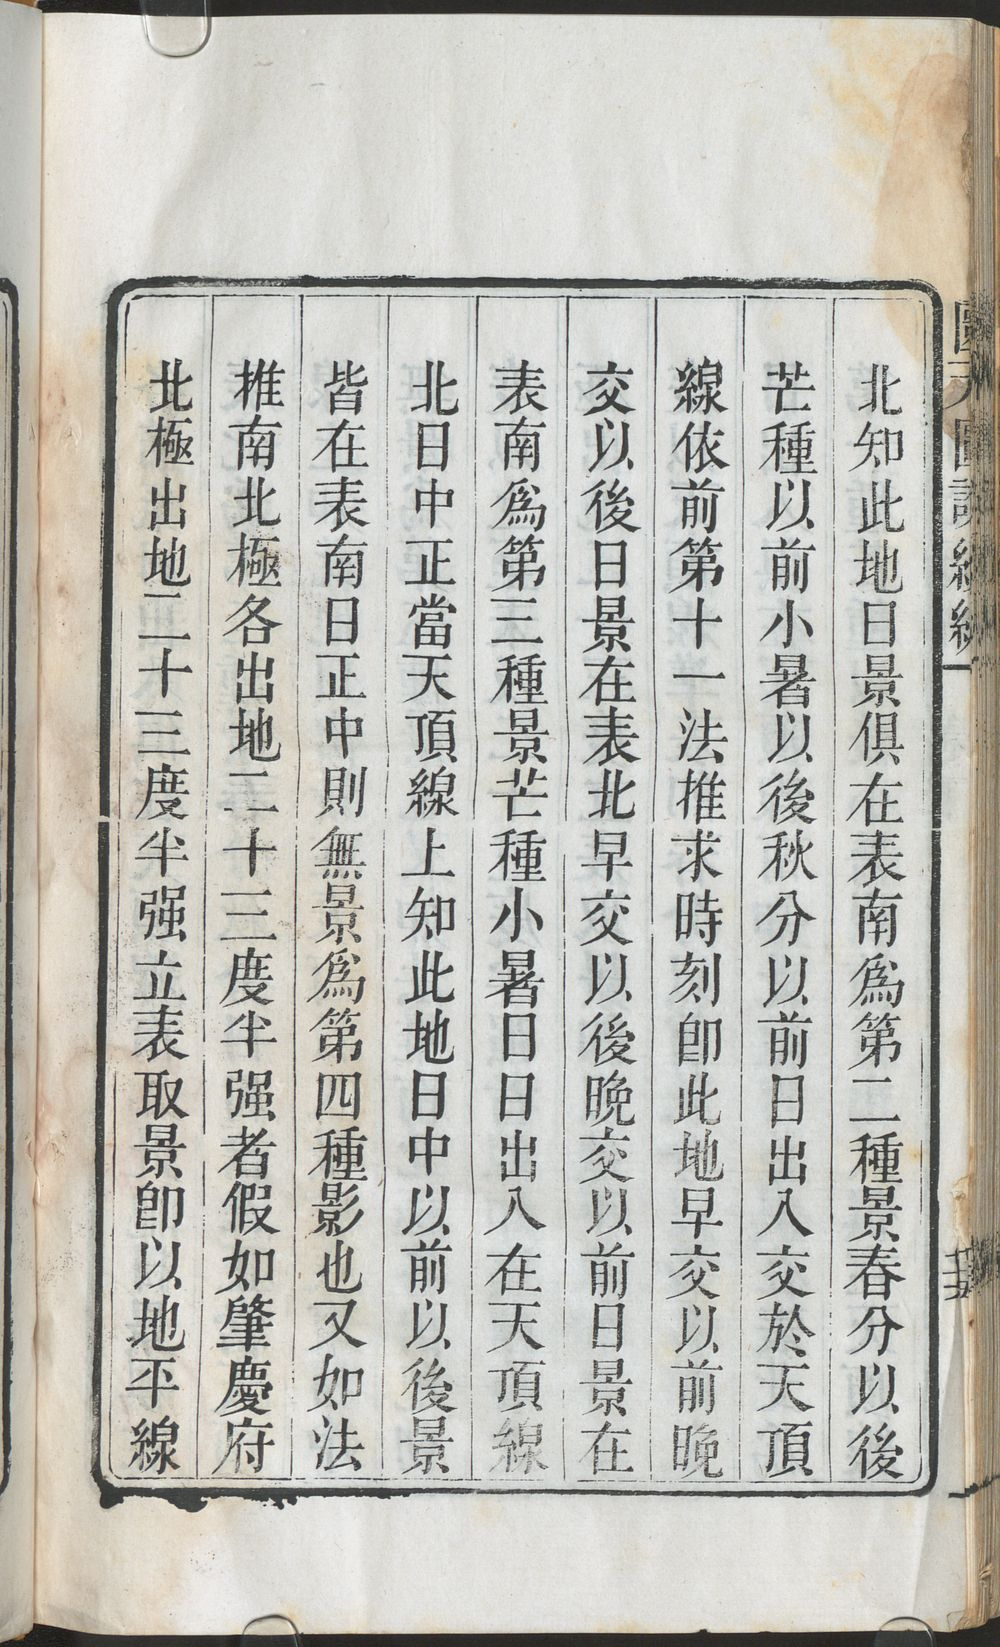 北知此地日景俱在表南爲第二種景春分以後
芒種以前小暑以後秋分以前日出入交於天頂
線依前第十一法推求時刻卽此地早交以前晚
交以後日景在表北早交以後晚交以前日景在
表南爲第三種景芒種小暑日日出入在天頂線
北日中正當天頂線上知此地日中以前以後景
皆在表南日正中則無景爲第四種影也又如法
推南北極各出地二十三度半强者假如肇慶府
北極出地二十三度半强立表取景卽以地平線